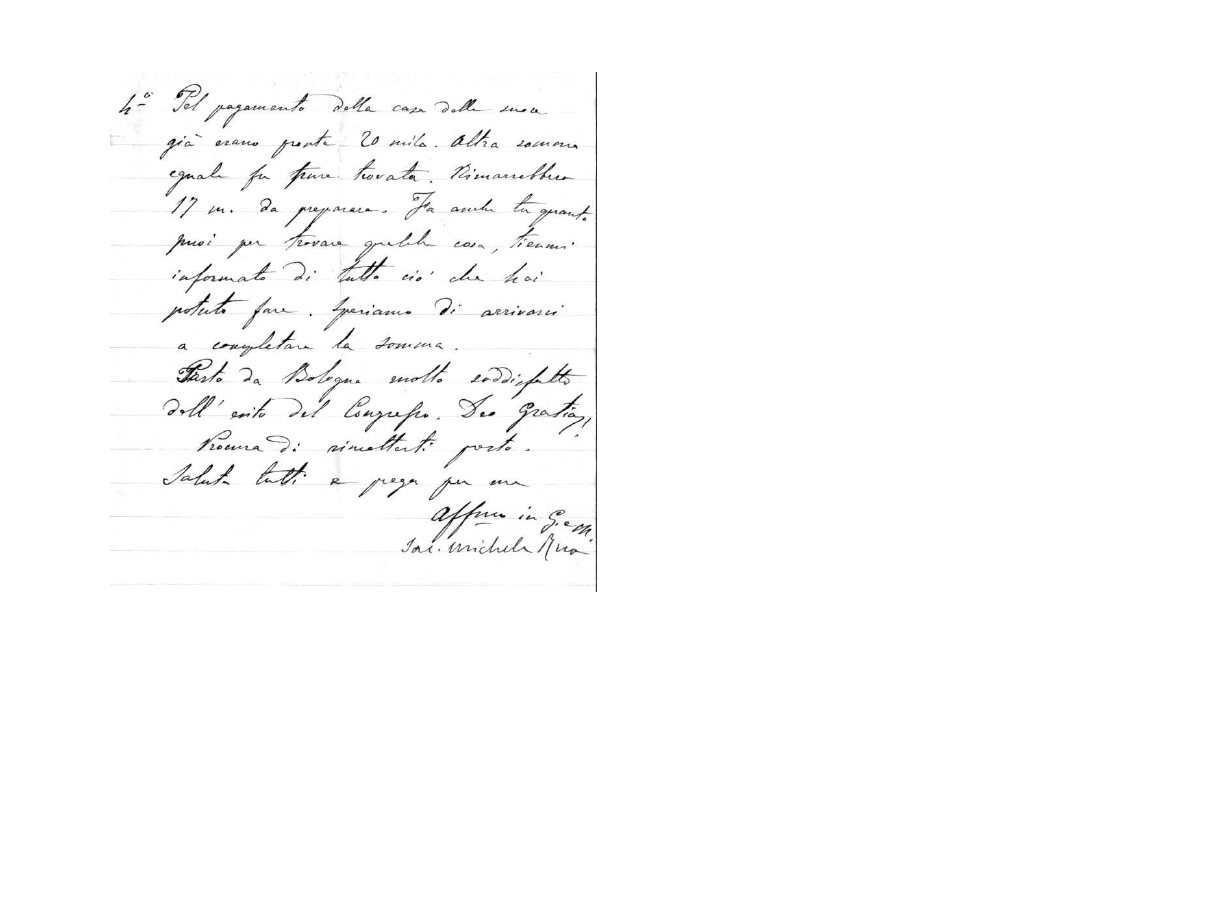 4º Pel pagamento della casa delle suore
già erano pronte 20 mila. Altra somma
eguale fu pure trovata. Rimarrebbero
17 m. da preparare. Fa anche tu quanto
puoi per trovare qualche cosa, tienmi
informato di tutto ciò che hai
potuto fare. Speriamo di arrivarci
a completare la somma.
Parto da Bologna molto soddisfatto
dell' esito del Congresso. Deo Gratias!
Procura di rimetterti presto.
Saluta tutti e prega per me
Affmo in G. e M.
Sac. Michele Rua